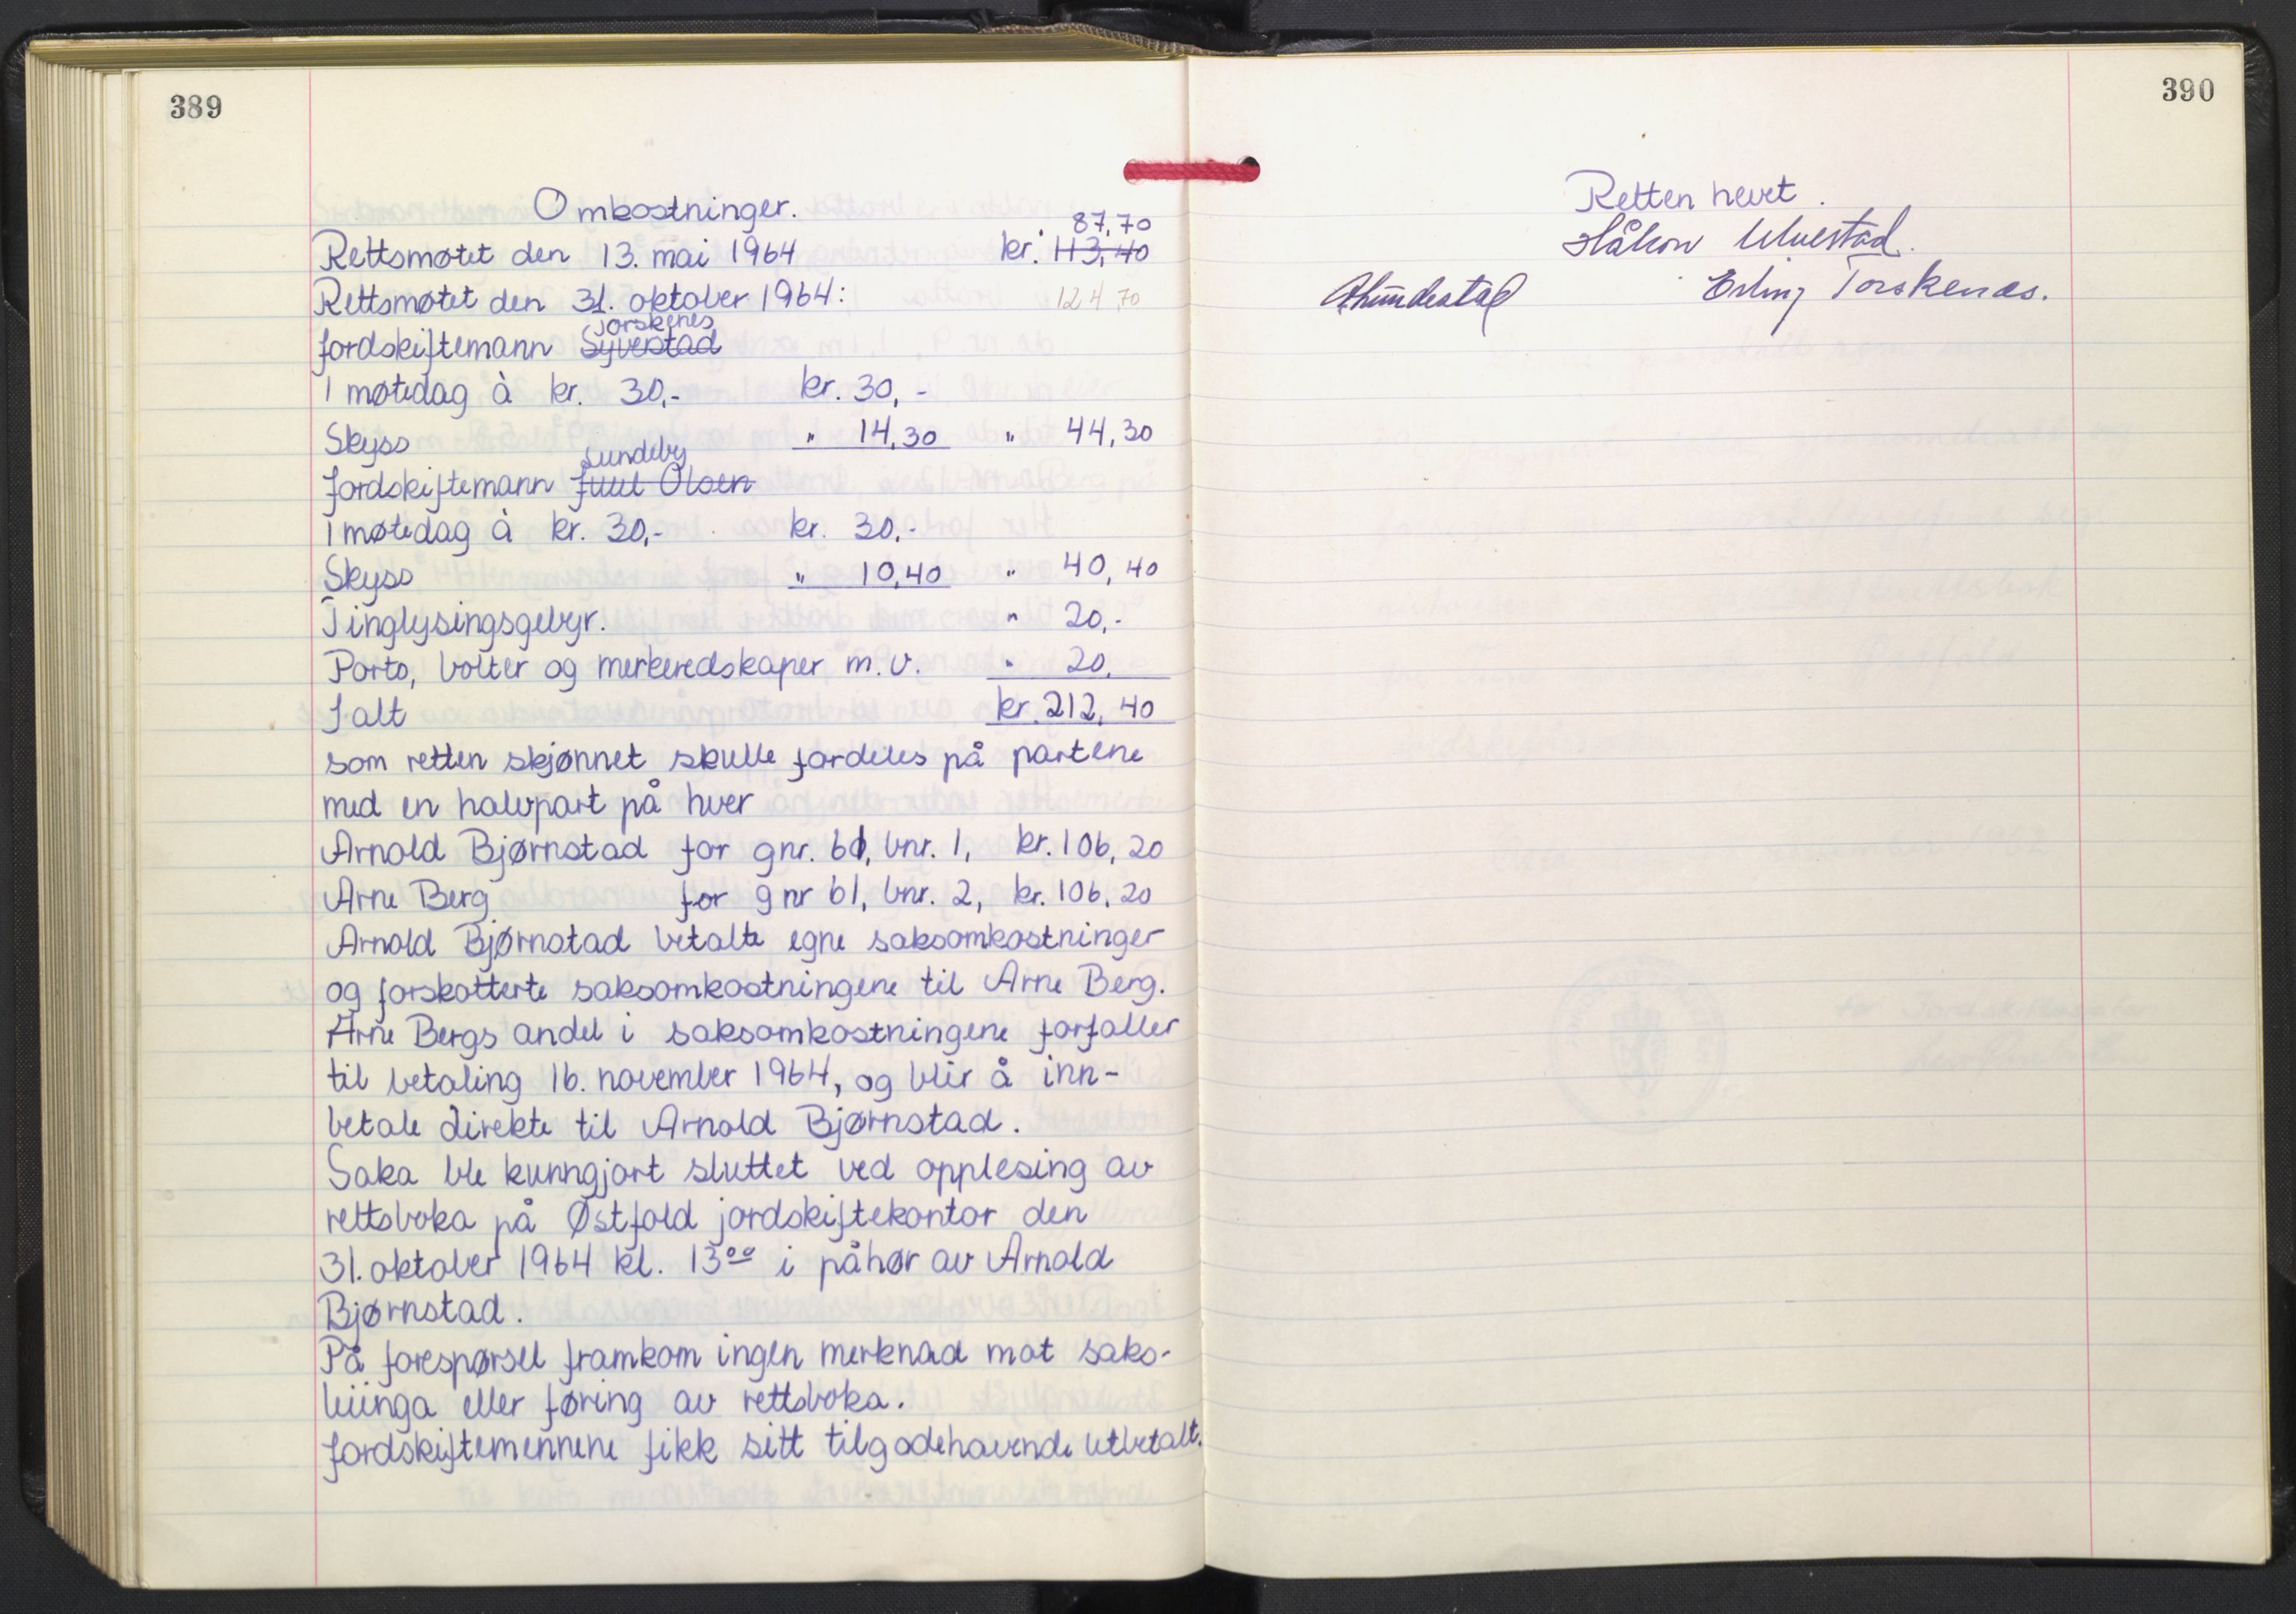 389
Omkostninger.
87,70
Rettsmøtet den 13. mai 1964 kr. 113,40
Rettsmøtet den 31. oktober 1964: 124,70
Torskenes
Jordskiftemann Syverstad
1 møtedag à kr. 30,- kr. 30,-
Skyss " 14,30 " 44,30
Lundeby
Jordskiftemann Juul Olsen
1 møtedag à kr. 30,- kr. 30,-
Skyss " 10,40 " 40,40
Tinglysingsgebyr. " 20,-
Porto, bolter og merkeredskaper m.v. " 20,
I alt kr. 212,40
som retten skjønnet skulle fordeles på partene
med en halvpart på hver
Arnold Bjørnstad for gnr. 61, bnr. 1, kr. 106,20
Arne Berg for gnr 61, bnr. 2, kr. 106,20
Arnold Bjørnstad betalte egne saksomkostninger
og forskotterte saksomkostningene til Arne Berg.
Arne Bergs andel i saksomkostningene forfaller
til betaling 16. november 1964, og blir å inn-
betale direkte til Arnold Bjørnstad.
Saka ble kunngjort sluttet ved opplesing av
rettsboka på Østfold jordskiftekontor den
31. oktober 1964 kl. 13⁰⁰ i påhør av Arnold
Bjørnstad.
På forespørsel framkom ingen merknad mot saks-
leiinga eller føring av rettsboka.
Jordskiftemennene fikk sitt tilgodehavende utbetalt.
390
Retten hevet.
Håkon
Erling Torskenæs.